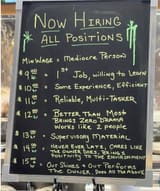 NOW HIRING
ALL POSITIONS
MIN WAGE = MEDIOCRE PERSON
$9.00 = 1ST JOB, WILLING TO LEARN
$10.00 = SOME EXPERIENCE, EFFICIENT
$11.00 = RELIABLE, MULTI-TASKER
$12.00 = BETTER THAN MOST
BRINGS ZERO DRAMA
WORKS LIKE 2 PEOPLE
$13.00 = SUPERVISORY MATERIAL
NEVER EVER LATE, CARES LIKE
THE OWNER DOES, BRINGS
POSITIVITY TO THE ENVIRONMENT
OUT SHINES & OUT PERFORMS
THE OWNER, DOES ALL THE ABOVE